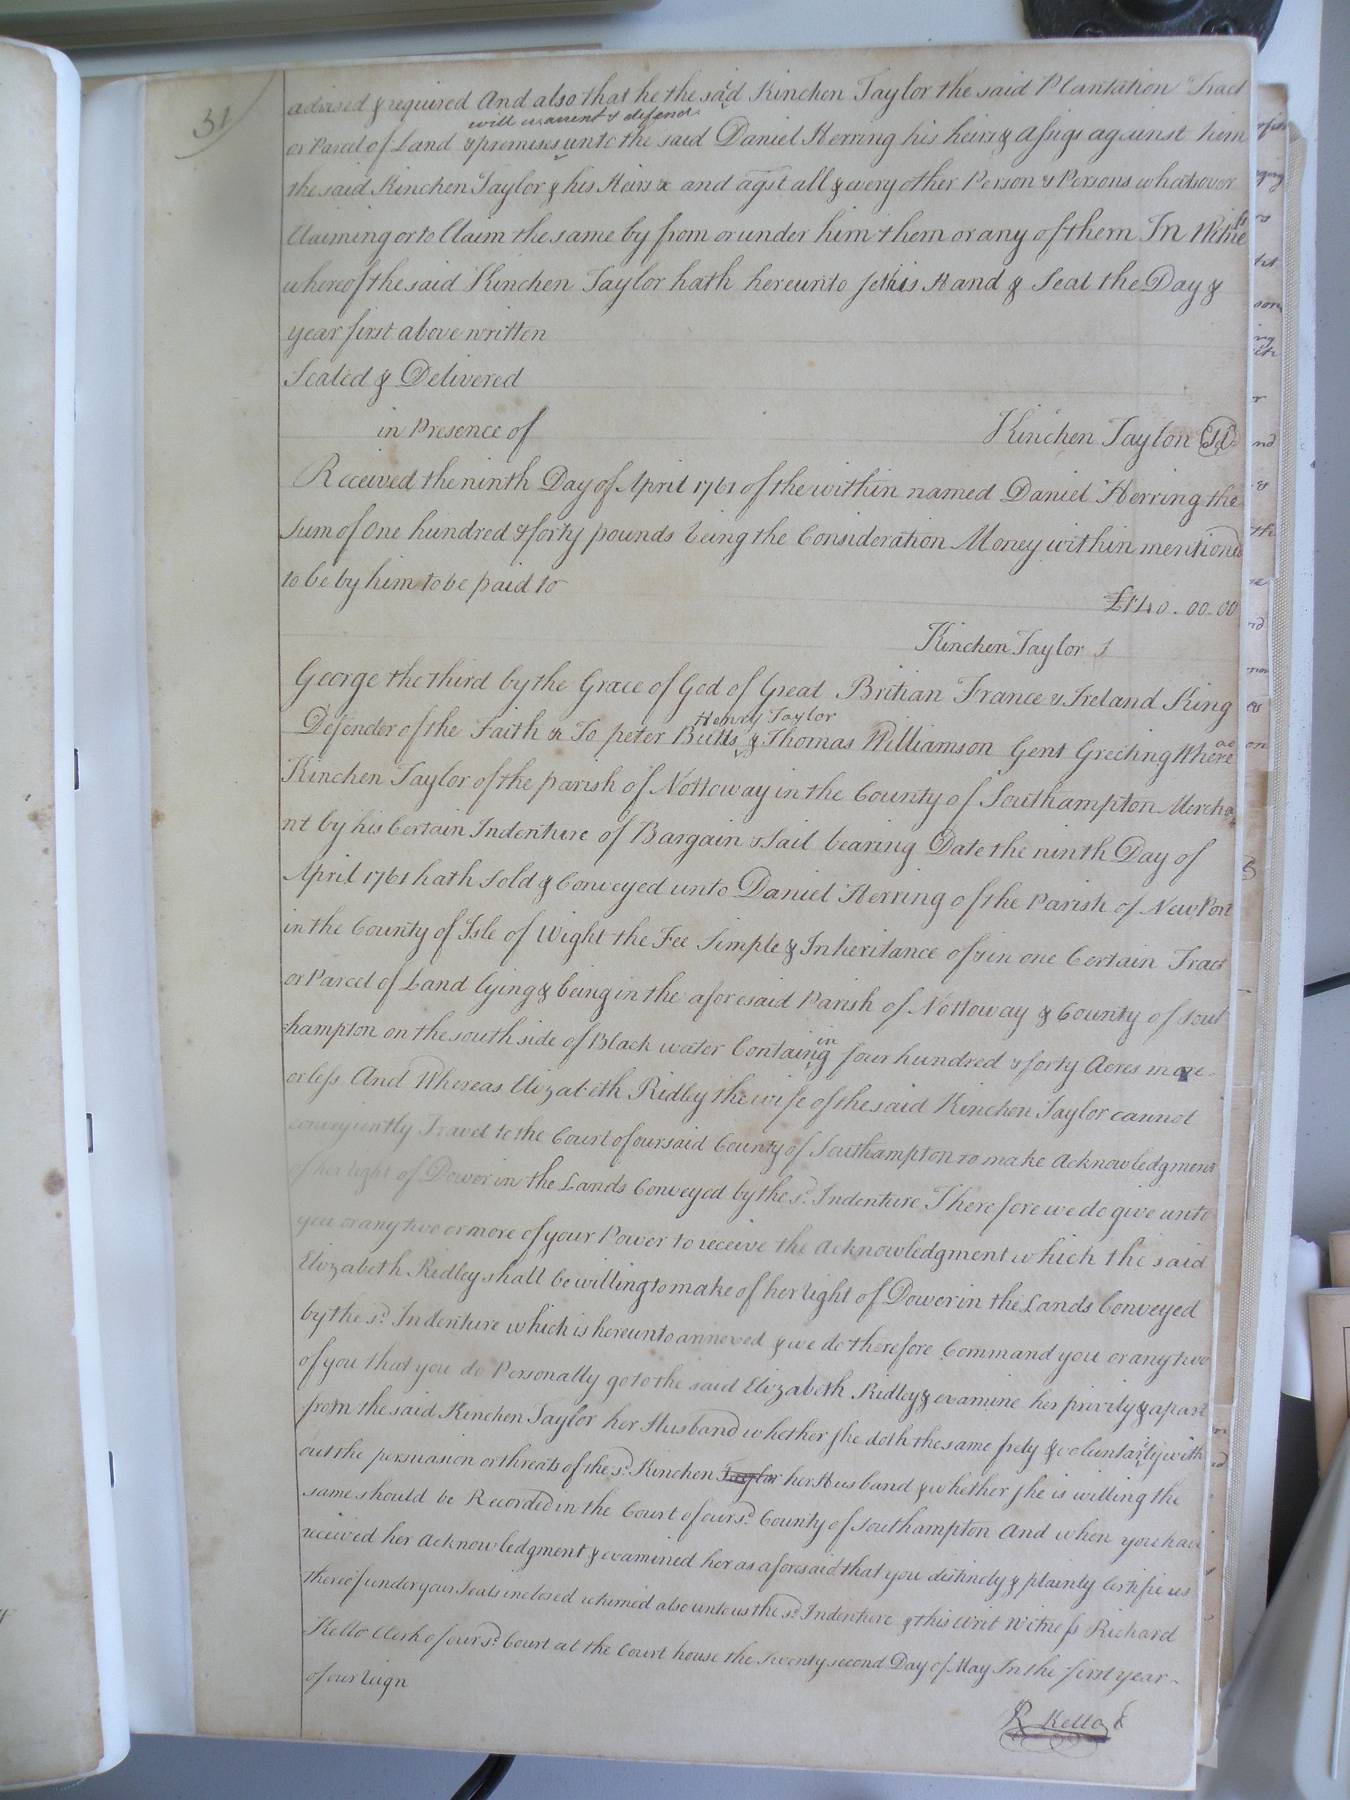 31
advised & required And also that he the said Kinchen Taylor the said Plantation Tract
will warrent & defend
or Parcel of Land & premises unto the said Daniel Herring his heirs & assigs against him
the said Kinchen Taylor & his Heirs & and agst all & every other Person & Persons whatsover
Claiming or to Claim the same by from or under him them or any of them In Witness
whereof the said Kinchen Taylor hath hereunto set his Hand & Seal the Day &
year first above written
Sealed & Delivered
in Presence of Kinchen Taylor
Received the ninth Day of April 1761 of the within named Daniel Herring the
Sum of One hundred & forty pounds being the Consideration Money within mentiond
to be by him to be paid to
£140..00..00
Kinchen Taylor
George the third by the Grace of God of Great Britian France & Ireland King
Henry Taylor
Defender of the Faith &c To peter Butts & Thomas Williamson Gent Greeting Whereas
Kinchen Taylor of the parish of Nottoway in the County of Southampton Mercha
nt by his Certain Indenture of Bargain & Sail bearing Date the ninth Day of
April 1761 hath Sold & Conveyed unto Daniel Herring of the Parish of New Port
in the County of Isle of Wight the Fee Simple & Inheritance of & in one Certain Tract
or Parcel of Land lying & being in the aforesaid Parish of Nottoway & County of Sout
hampton on the south side of Black water Containing four hundred & forty Acres more
or less And Whereas Elizabeth Ridley the wife of the said Kinchen Taylor cannot
conveniently Travel to the Court of our said County of Southampton to make Acknowledgment
of her right of Dower in the Lands Conveyed by the sd. Indenture Therefore we do give unto
you or any two or more of your Power to receive the Acknowledgment which the said
Elizabeth Ridley shall be willing to make of her right of Dower in the Lands Conveyed
by the sd. Indenture which is hereunto annexed & we do therefore Command you or any two
of you that you do Personally go to the said Elizabeth Ridley & examine her privily & apart
from the said Kinchen Taylor her Husband whether she doth the same frely & voluntarily with
out the persuasion or threats of the sd. Kinchen Taylor her Husband & whether she is willing the
same should be Recorded in the Court of our sd. County of Southampton And when you have
received her Acknowledgment & examined her as aforesaid that you distincly & plainly Certifie us
thereof under your Seals inclosed returned also unto us the sd. Indenture & this writ Witness Richard
Kello Clerk of our sd. Court at the Court house the twenty second Day of May In the first year
of our reign
R Kello